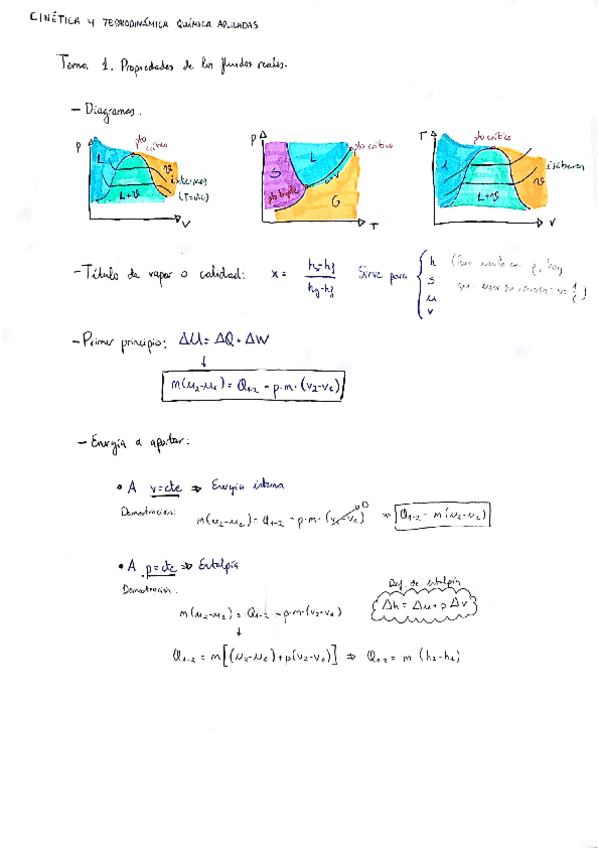 CINÉTICA Y TERMODINÁMICA QUÍMICA APLICADAS
Tema 1. Propiedades de los fluidos reales.
- Diagramas.
P pto crítico L V L+V isotermas (T=cte) V
P S L pto crítico L+V pto triple G T
T pto crítico L L+V V isóbaras V
- Título de vapor o calidad: x = (hx-hf)/(hg-hf) Sirve para { h s u v
- Primer principio: ΔU = ΔQ + ΔW
↓
m(u2-u1) = Q1-2 - p·m·(v2-v1)
- Energía a aportar:
• A v=cte ⇒ Energía interna
Demostración:
m(u2-u1) = Q1-2 - p·m·(v2-v1) 0 ⇒ Q1-2 = m(u2-u1)
• A p=cte ⇒ Entalpía
Demostración:
Def. de entalpía
Δh = Δu + p Δv
m(u2-u1) = Q1-2 - p·m·(v2-v1)
↓
Q1-2 = m[(u2-u1)+p(v2-v1)] ⇒ Q1-2 = m (h2-h1)